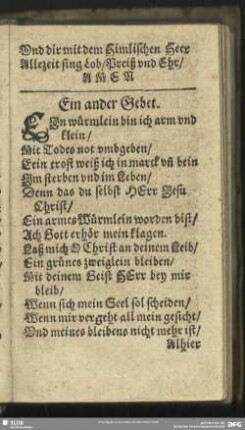 Vnd dir mit dem Himlischen Heer
Allezeit sing Lob/Preiß vnd Ehr/
A M E N
Ein ander Gebet.
EIn würmlein bin ich arm vnd
klein/
Mit Todes not vmbgeben/
Kein trost weiß ich in marck vñ bein
Im sterben vnd im Leben/
Denn das du selbst HErr Jesu
Christ/
Ein armes Würmlein worden bist/
Ach Gott erhör mein klagen.
Laß mich O Christ an deinem Leib/
Ein grünes zweiglein bleiben/
Mit deinem Geist HErr bey mir
bleib/
Wenn sich mein Seel sol scheiden/
Wenn mir vergeht all mein gesicht/
Vnd meines bleibens nicht mehr ist/
Alhier
SLUB